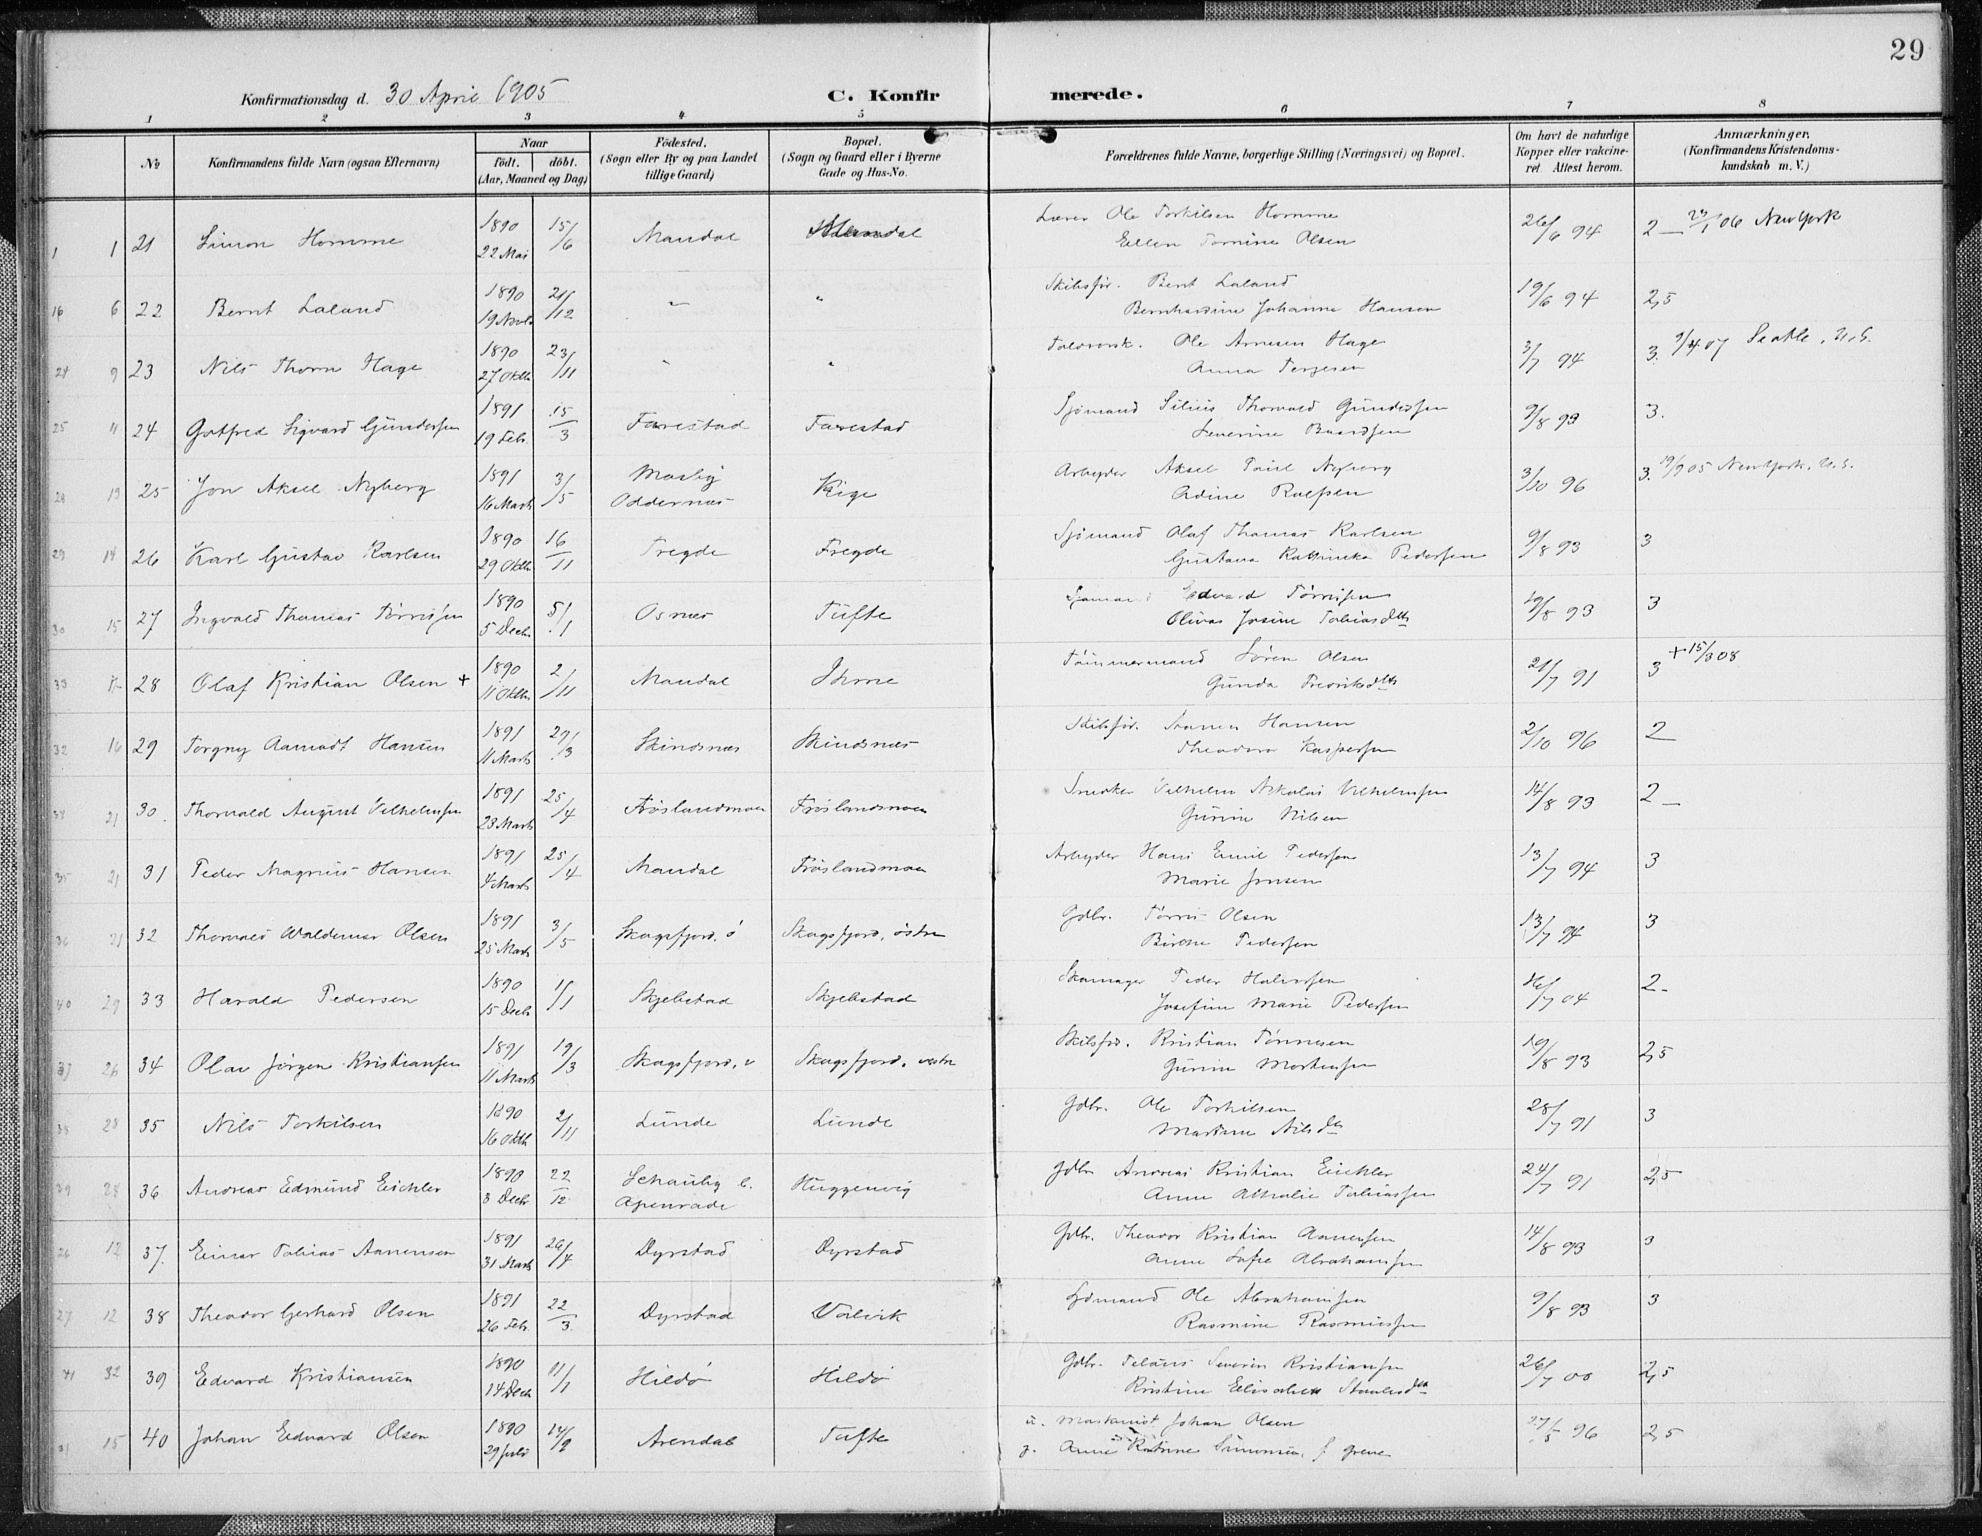 29
Konfirmationsdag d. 30 April 1905
C. Konfirmerede.
1 2 3 4 5 6 7 8
No
Konfirmandens fulde Navn (ogsaa Efternavn)
Naar
født. døbt.
(Aar, Maaned og Dag)
Fødested.
(Sogn eller By og paa Landet
tillige Gaard)
Bopæl.
(Sogn og Gaard eller i Byerne
Gade og Hus-No.
Forældrenes fulde Navne, borgerlige Stilling (Næringsvei) og Bopæl.
Om havt de naturlige
Kopper eller vakcine-
ret. Attest herom.
Anmærkninger.
(Konfirmandens Kristendoms-
kundskab m. V.)
1 1 21 Simon Homme 1890 22 Mai 15/6 Mandal Mandal Lærer Ole Torkilsen Homme
Ellen Tomine Olsen 26/6 94 2 – 23/1 06 New York
16 6 22 Bernt Laland 1890 19 Novb 21/12 " " Skibsfør. Bernt Laland
Bernhardine Johanne Hansen 19/6 94 2,5
24 9 23 Nils Thorn Hage 1890 27 Oktb 23/11 " " Toldvorsk. Ole Arnesen Hage
Anna Terjesen 3/7 94 3. 07 Seatle, U.S.
25 11 24 Gotfred Sigvard Gundersen 1891 19 Feb. 15/3 Farestad Farestad Sjömand Silius Thorvald Gundersen
Severine Baardsen 9/8 93 3.
28 13 25 Jon Aksel Nyberg 1891 16 Marts 3/5 Mosby
Oddernes Kige Arbeyder Aksel Nyberg
Adine Rolfsen 3/10 96 3. 19/9 05 New York, U.S.
29 14 26 Karl Gustav Karlsen 1890 29 Oktb 16/11 Tregde Tregde Sjömand Olaf Thomas Karlsen
Gustava Kathinka Pedersen 9/8 93 3
30 15 27 Ingvald Thomas Tørrisen 1890 5 Decb 5/1 Osnes Tufte Sjömand Edvard Tørrisen
Olivas Josine Tobiasdtr 19/8 93 3
33 28 Olaf Kristian Olsen + 1890 11 Oktb 2/11 Mandal Ihme Tömmermand Søren Olsen
Gunda Fredriksdtr 21/7 91 3 + 15/3 08
32 16 29 Torgny Aamodt Hansen 1891 11 Marts 29/3 Skindsnes Skindsnes Skibsför. Hansen
Theodora Kaspersen 2/10 96 2
21 30. Thorvald August Vilhelmsen 1891 23 Marts 25/4 Frøslandsmoen Frøslandsmoen Snedker Vilhelm Nikolai Vilhelmsen
Gurine Nilsen 14/8 93 2 –
35 21 31 Peder Magnus Hansen 1891 4 Marts 25/4 Mandal Frøslandsmoen Arbeyder Hans Emil Pedersen
Marie Jensen 13/7 94 3
36 21 32 Thorvald Waldemar Olsen 1891 25 Marts 3/5 Skogsfjord, ø Skogsfjord, østre Gdbr. Tørris Olsen
Birthe Pedersen 13/7 94 3
40 29 33 Harald Pedersen 1890 15 Decb 1/1 Skjebstad Skjebstad Skomager Peder Halvorsen
Josefine Marie Pedersen 04 2 –
37 26 34 Olav Jörgen Kristiansen 1891 11 Marts 19/3 Skogsfjord, v Skogsfjord, vestre Skibsfør. Kristian Tønnesen
Gurine Mortensen 19/8 93 2,5
38 28 35 Nils Torkilsen 1890 16 Oktb 2/11 Lunde Lunde Gdbr. Ole Torkilsen
Martine Nilsdtr 28/7 91 3
39 28 36 Andreas Edmund Eickler 1890 3 Decb 22/12 Schauby
Apenrade Huggenvig Gdbr Andreas Kristian Eickler
Anne Athalie Tobiassen 24/7 91 2,5
26 12 37. Einar Tobias Aanensen 1891 31 Marts 26/4 Dyrstad Dyrstad Gdbr. Theodor Kristian Aanensen
Anne Sofie Abrahamsen 14/8 93 3
27 12 38 Theodor Gerhard Olsen 1891 26 Feb. 22/3 Dyrstad Valvik Sjömand Ole Abrahamsen
Rasmine Rasmussen 9/8 93 3
41 32 39 Edvard Kristiansen 1890 14 Decb 11/1 Hildø Hildø Gdbr. Severin Kristiansen
Kristine Elisabeth 26/7 00 2,5
31 15 40 Johan Edvard Olsen 1890 29 Juli 14/9 Arendal Tufte u. Maskinist Johan Olsen
g. Anne Katrine Simonsen f. Greve 27/5 96 2,5